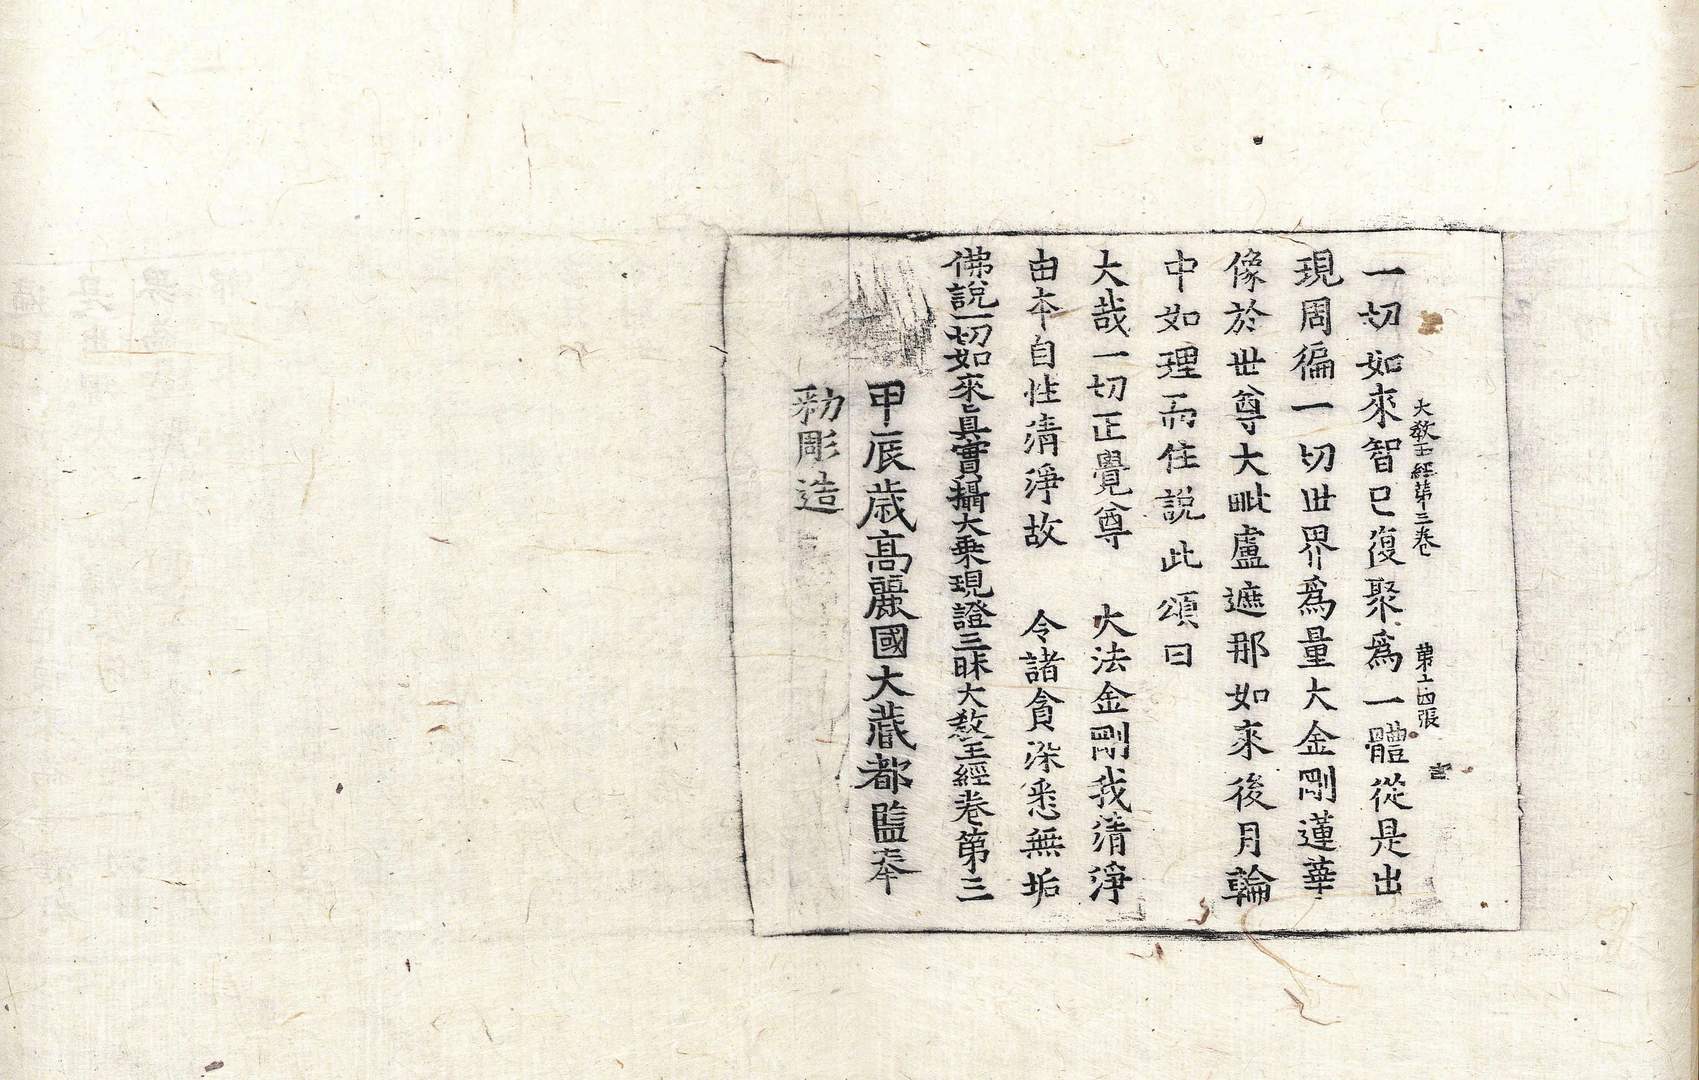 大教王經第三卷 第十四張 言
一切如來智已復聚爲一體從是出
現周徧一切世界爲量大金剛蓮華
像於世尊大毗盧遮那如來後月輪
中如理而住說此頌曰
大哉一切正覺尊 大法金剛我清淨
由本自性清淨故 令諸貪染悉無垢
佛說一切如來真實攝大乗現證三昧大教王經卷第三
甲辰歲高麗國大藏都監奉
勑彫造